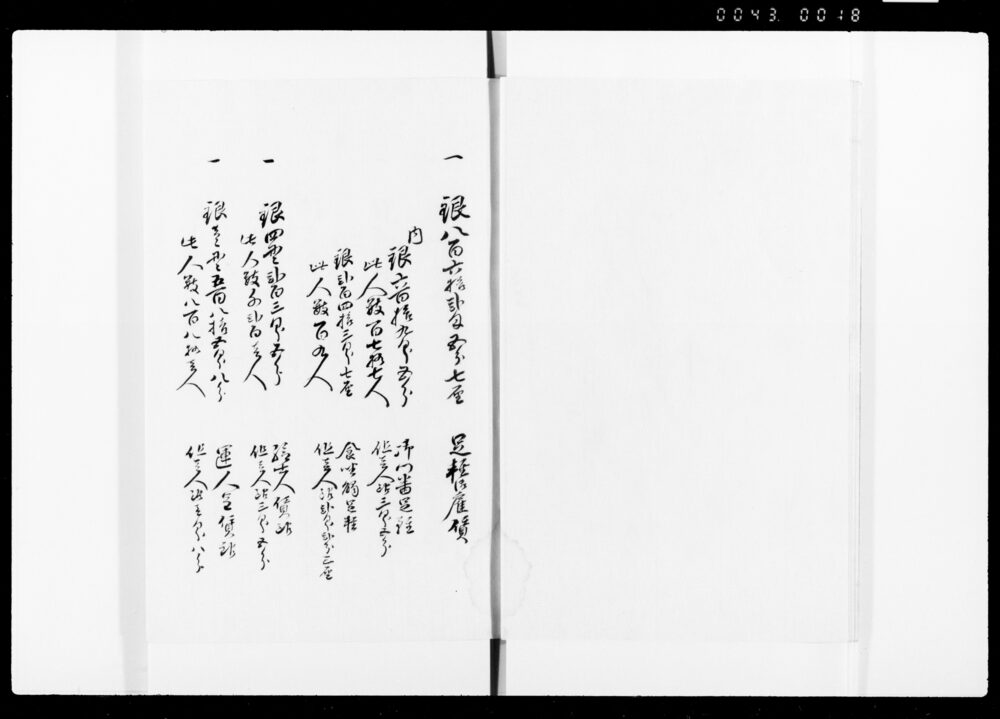 0043. 0018
一 銀八百六拾弐匁五分七厘 足軽雇賃
内
銀六百拾九匁五分 御門番足軽
此人数百七拾七人 但壱人ニ付三匁五分
銀弐百四拾三匁七厘 足軽
此人数百九人 但壱人ニ付弐匁弐分三厘
一 銀四貫弐百三匁五分 人賃
此人数千弐百壱人 但壱人ニ付三匁五分
一 銀壱貫五百八拾五匁八分 運人賃
此人数八百八拾壱人 但壱人ニ付壱匁八分